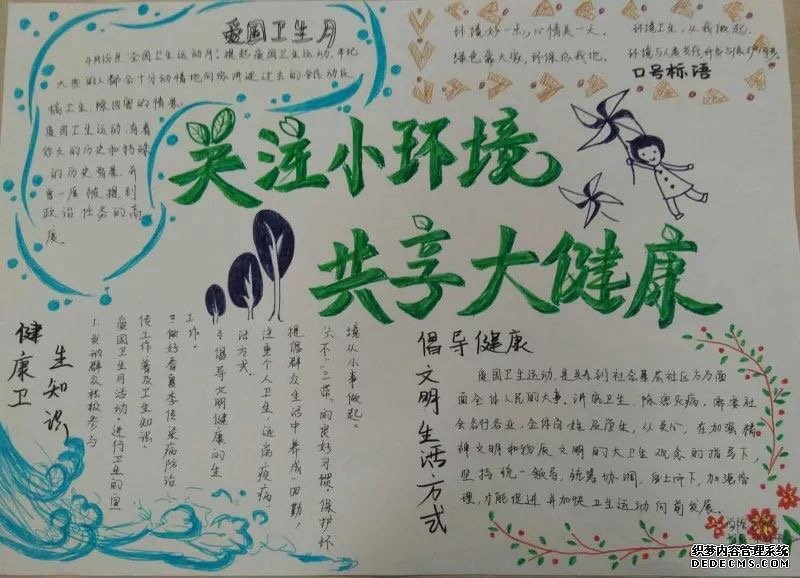 爱国卫生月
4月份是"全国卫生运动月"。提起爱国卫生运动,年纪
大些的人都会十分动情地向你讲述过去的全民动员
搞卫生,除四害的情景。
爱国卫生运动,有着
悠久的历史和特殊
的历史背景,并
曾一度被提到
政治任务的高
度。
环境好一点,心情美一天。
绿色靠大家,环保你我他。
环境卫生,从我做起。
口号标语
关注小环境
共享大健康
健康卫
生知识
1、发动群众积极参与
爱国卫生月活动。进行卫生的宣
传工作普及卫生知识。
2、做好春夏季传染病防治
工作。
3、倡导文明健康的生
活方式。
注重个人卫生,远离疾病,
提倡群众生活中养成"四勤,
"三带"的良好习惯。保护环
境从小事做起。
倡导健康
文明生活方式
爱国卫生运动,是涉及到社会基层社区方方面
面全体人民的大事。讲究卫生,除害灭病,需要社
会各行各业,全体
在加强精
神文明和物质文明的大卫生观念的指导下,
坚持统一领导,统筹协调,自上而下,加强管
理,才能促进并加快卫生运动向前发展。
织梦内容管理系统
DEDECMS.COM